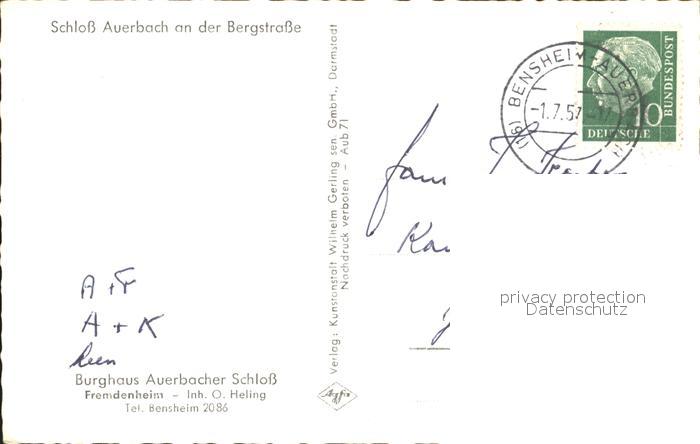 Schloß Auerbach an der Bergstraße
A + F
A + K
Burghaus Auerbacher Schloß
Fremdenheim – Inh. O. Heling
Tel. Bensheim 2086
Verlag: Kunstanstalt Wilhelm Gerling sen. GmbH., Darmstadt
Nachdruck verboten – Aub 71
Agfa
(16) BENSHEIM-AUERBACH
-1.7.57
10
DEUTSCHE
BUNDESPOST
privacy protection
Datenschutz